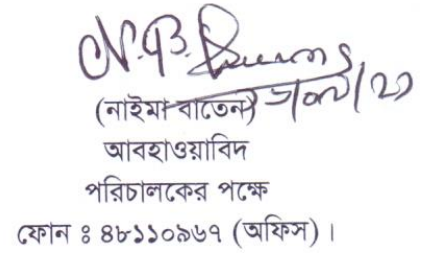 (নাইমা বাতেন)
আবহাওয়াবিদ
পরিচালকের পক্ষে
ফোন ঃ ৪৮১১০৯৬৭ (অফিস) ।